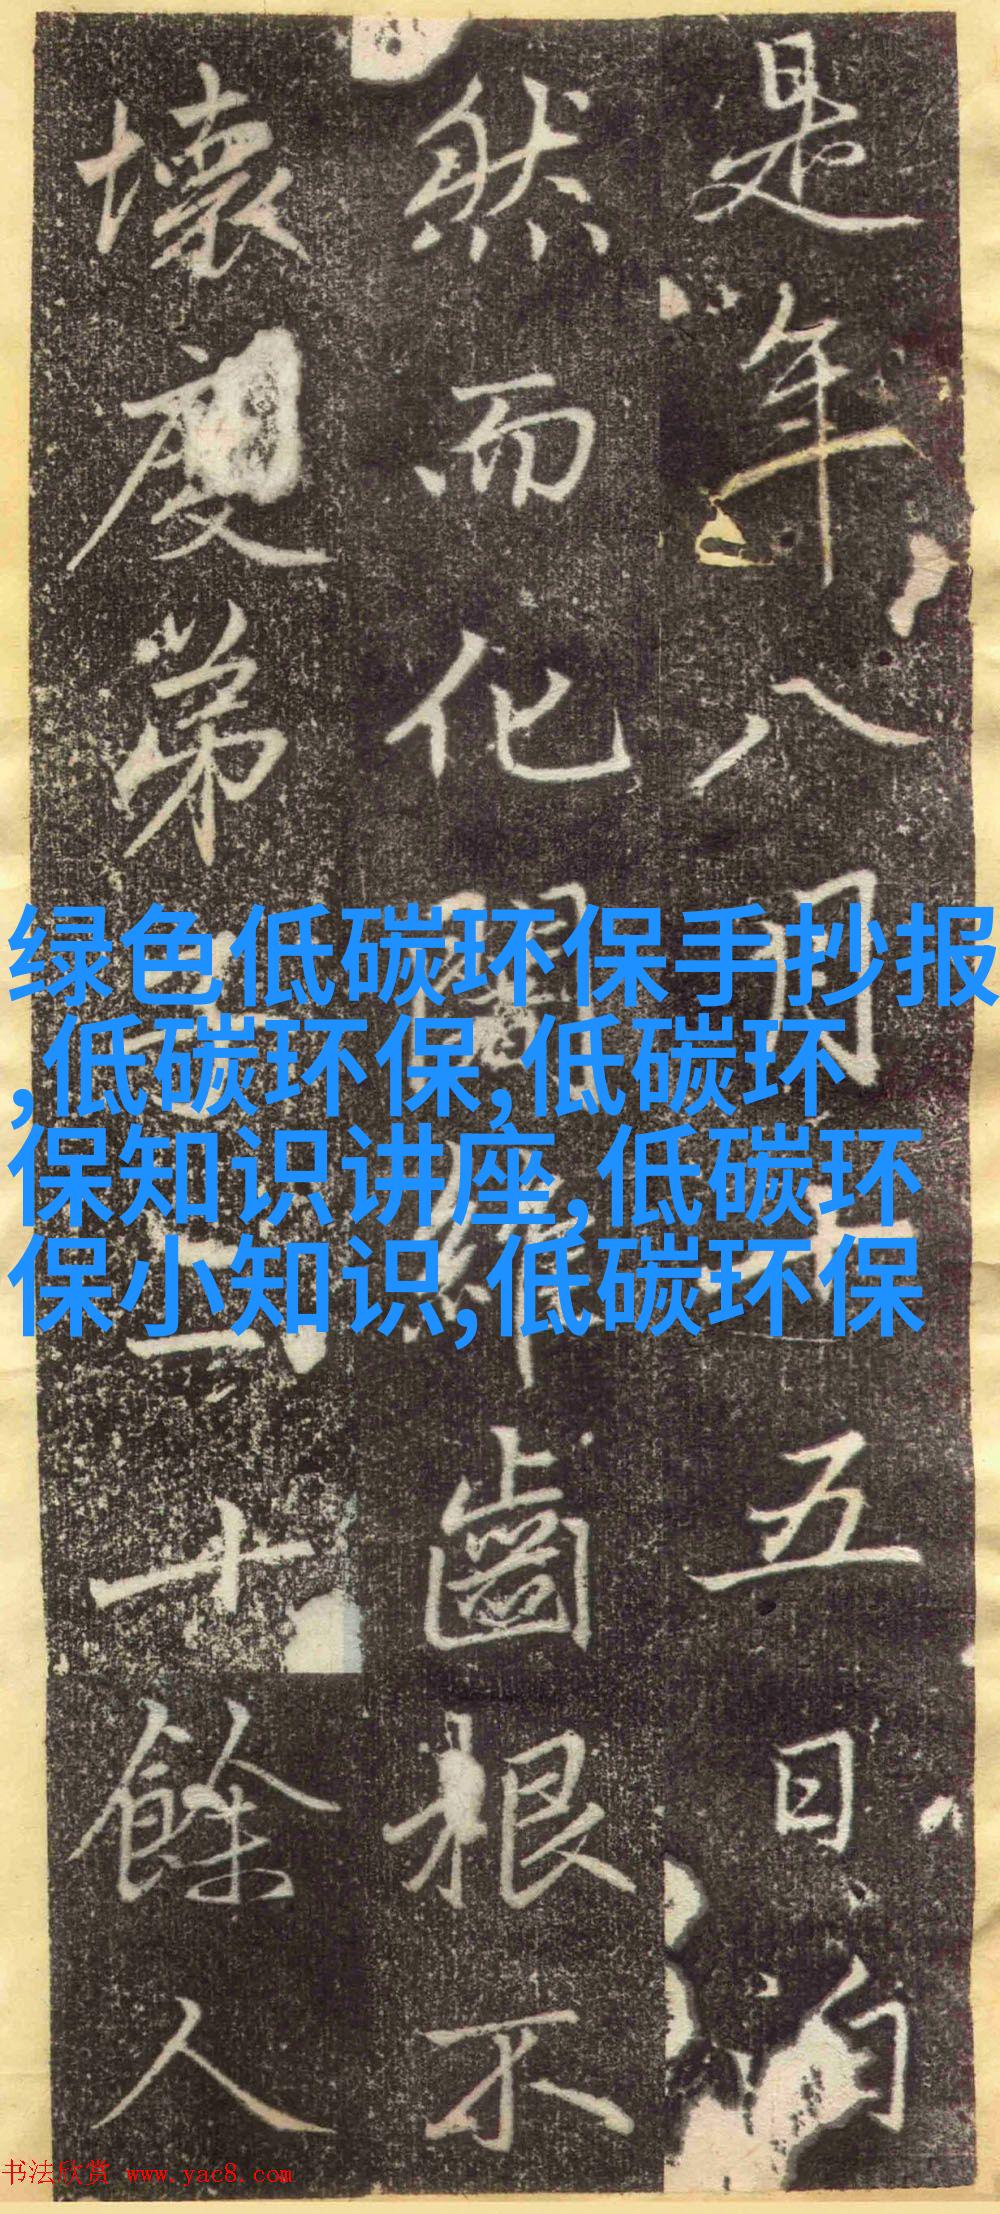 是年八月十五日自
然而化闍維齒根不
壞度弟子二十餘人
绿色低碳环保手抄报
,低碳环保,低碳环
保知识讲座,低碳环
保小知识,低碳环保
书法欣赏 www.yac8.com